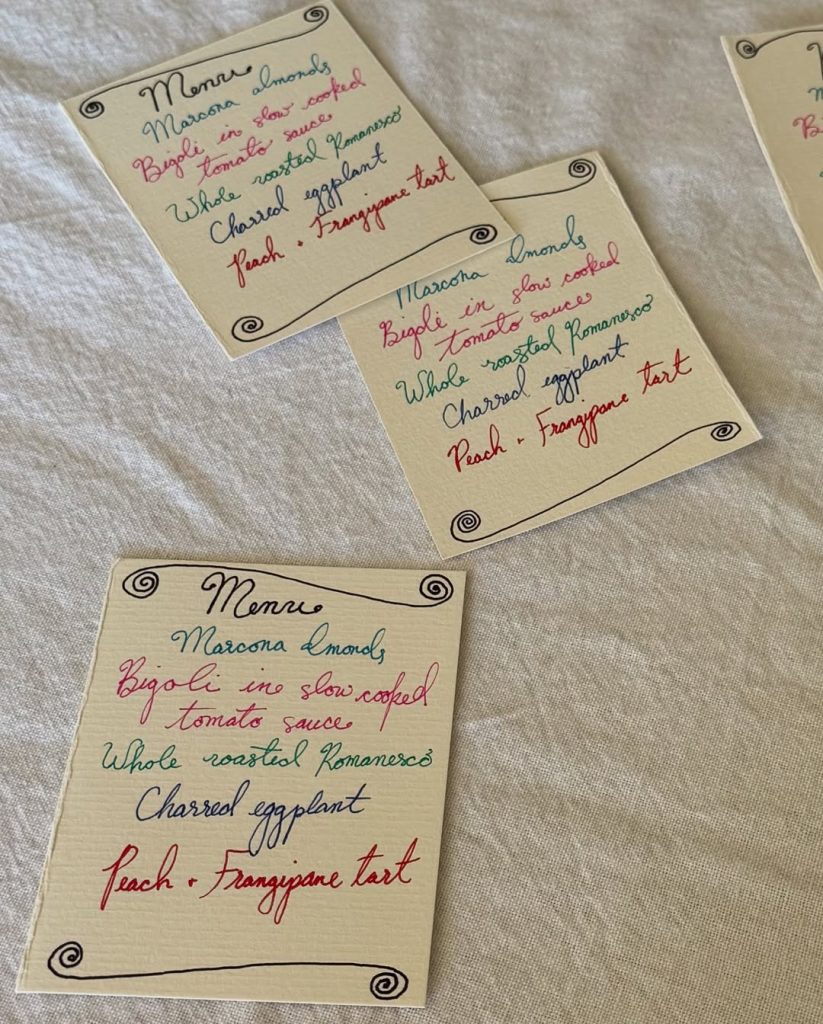 Menu
Marcona almonds
Bigoli in slow cooked
tomato sauce
Whole roasted Romanesco
Charred eggplant
Peach + Frangipane tart
Marcona almonds
Bigoli in slow cooked
tomato sauce
Whole roasted Romanesco
Charred eggplant
Peach + Frangipane tart
Menu
Marcona almonds
Bigoli in slow cooked
tomato sauce
Whole roasted Romanesco
Charred eggplant
Peach + Frangipane tart